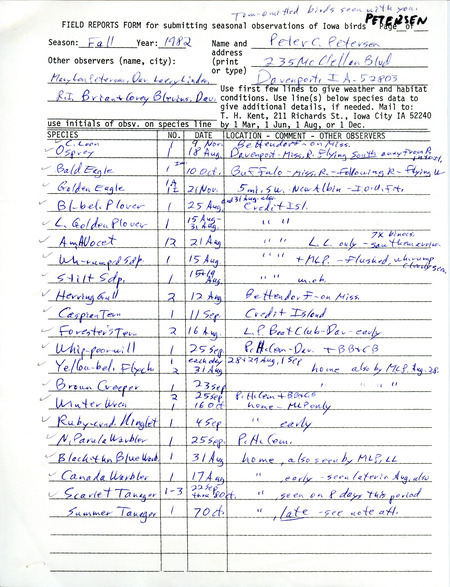 Tom-omitted birds seen with you.
PETERSEN
FIELD REPORTS FORM for submitting seasonal observations of Iowa birds Page of
Season: Fall Year: 1982 Name and Peter C. Petersen
Other observers (name, city): address 235 McClellan Blvd
(print
or type) Davenport, IA-52803
Mary Lou Petersen, Dav. Larry Linder,
R.I., Brian & Corey Blevins, Dav.
Use first few lines to give weather and habitat
conditions. Use line(s) below species data to
give additional details, if needed. Mail to:
T. H. Kent, 211 Richards St., Iowa City IA 52240
by 1 Mar, 1 Jun, 1 Aug, or 1 Dec.
use initials of obsv. on species line
SPECIES NO. DATE LOCATION - COMMENT - OTHER OBSERVERS
C. Loon 1 9 Nov. Bettendorf-on Miss.
Osprey 1 18 Aug. Davenport-Miss. R. Flying south away from R.
Bald Eagle 1 10 Oct. Buffalo-Miss. R.-Following R.-Flying W
Golden Eagle 21 Nov. 5 mi. s.w. New Albin - I.O.U. Fr.
Bl-bel. Plover 1 25 Aug and 31 Aug. Credit Isl.
L. Golden Plover 1 15 Aug-31 Aug. " "
Am Avocet 12 21 Aug " " L.L. only
Wh-rumpd Sdp. 1 15 Aug " " + MLP. - Flushed, wh rump
Stilt Sdp. 1 15+19 Aug. " " m.ob.
Herring Gull 2 12 Aug Bettendorf-on Miss.
Caspian Tern 1 11 Sep Credit Island
Forester's Tern 2 16 Aug. L.P. Boat Club-Dav-early
Whip-poor-will 1 25 Sep P. H. Cem-Dav. + BB+CB
Yellow-bel. Flych 1 each day 28+29 Aug, 1 Sep
2 31 Aug home also by MLP, Aug. 28.
Brown Creeper 1 23 Sep " " "
2 25 Sep P. H. Cem + BB+CB
Winter Wren 1 16 Oct home - MLP only
Ruby-cr'd Kinglet 1 4 Sep " early
N. Parula Warbler 1 25 Sep. P. H. Cem.
Black-thr Blue Warb. 1 31 Aug home, also seen by MLP, LL
Canada Warbler 1 17 Aug ", early-seen later in Aug. also
Scarlet Tanager 1-3 22 Sep thru 8 Oct. ", seen on 8 days this period
Summer Tanager 1 7 Oct. ", late - see note att.